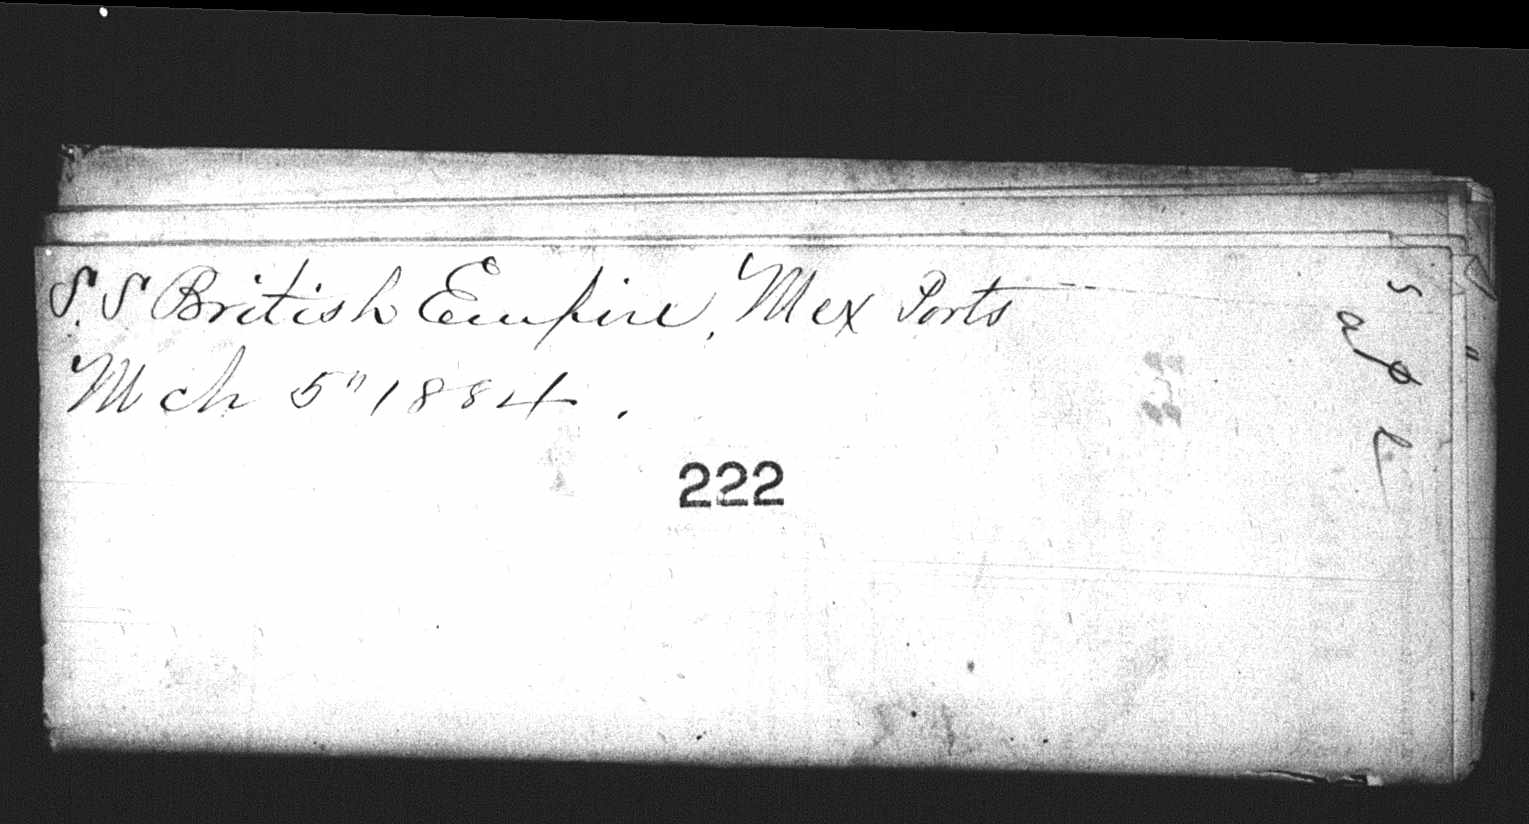 S.S British Empire, Mex Ports
Mch 5" 1884.
222